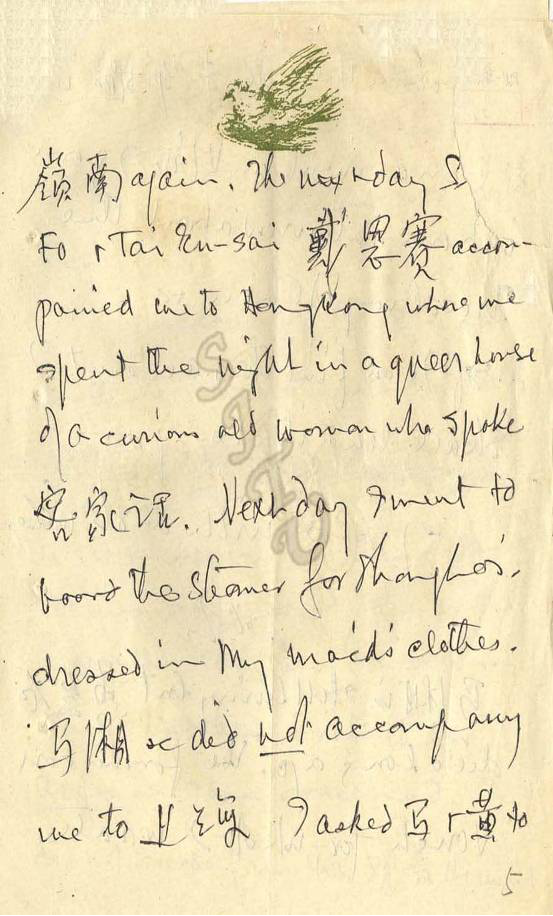 嶺南 again. The next day S
Fo + Tai En-sai 戴恩賽 accom-
panied me to Hongkong where we
spent the night in a queer house
of a curious old woman who spoke
客家话. Next day I went to
board the steamer for Shanghai,
dressed in my maid's clothes.
马湘 &c did not accompany
me to 上海 I asked 马 + 黄 to
5